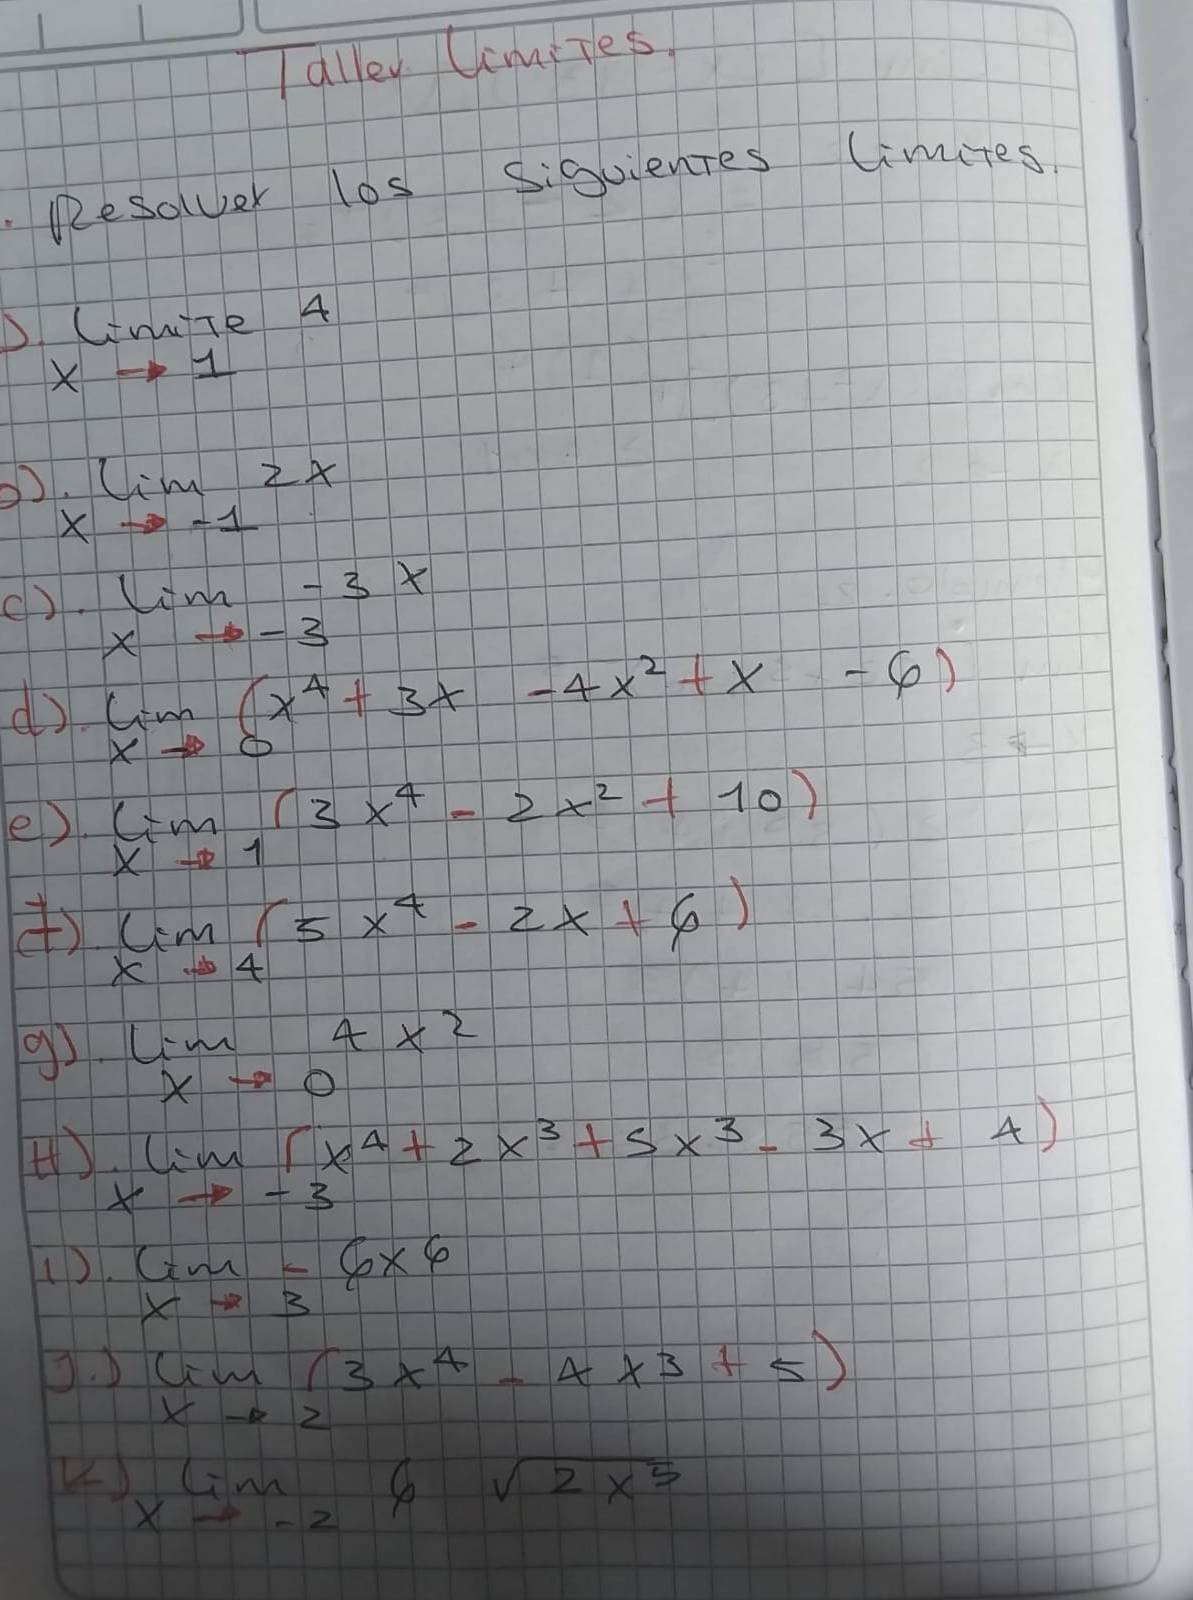 Taller Limites.
Resolver los siguientes limites.
). Limite 4
x → 1
b). Lim 2x
x → -1
c). Lim -3x
x → -3
d). Lim (x⁴ + 3x - 4x² + x - 6)
x → 0
e). Lim (3x⁴ - 2x² + 10)
x → 1
f). Lim (5x⁴ - 2x + 6)
x → 4
g). Lim 4x²
x → 0
H). Lim (x⁴ + 2x³ + 5x³ - 3x + 4)
x → -3
i). Lim - 6x⁶
x → 3
J.) Lim (3x⁴ - 4x³ + 5)
x → 2
K) Lim 6 √2x⁵
x → -2